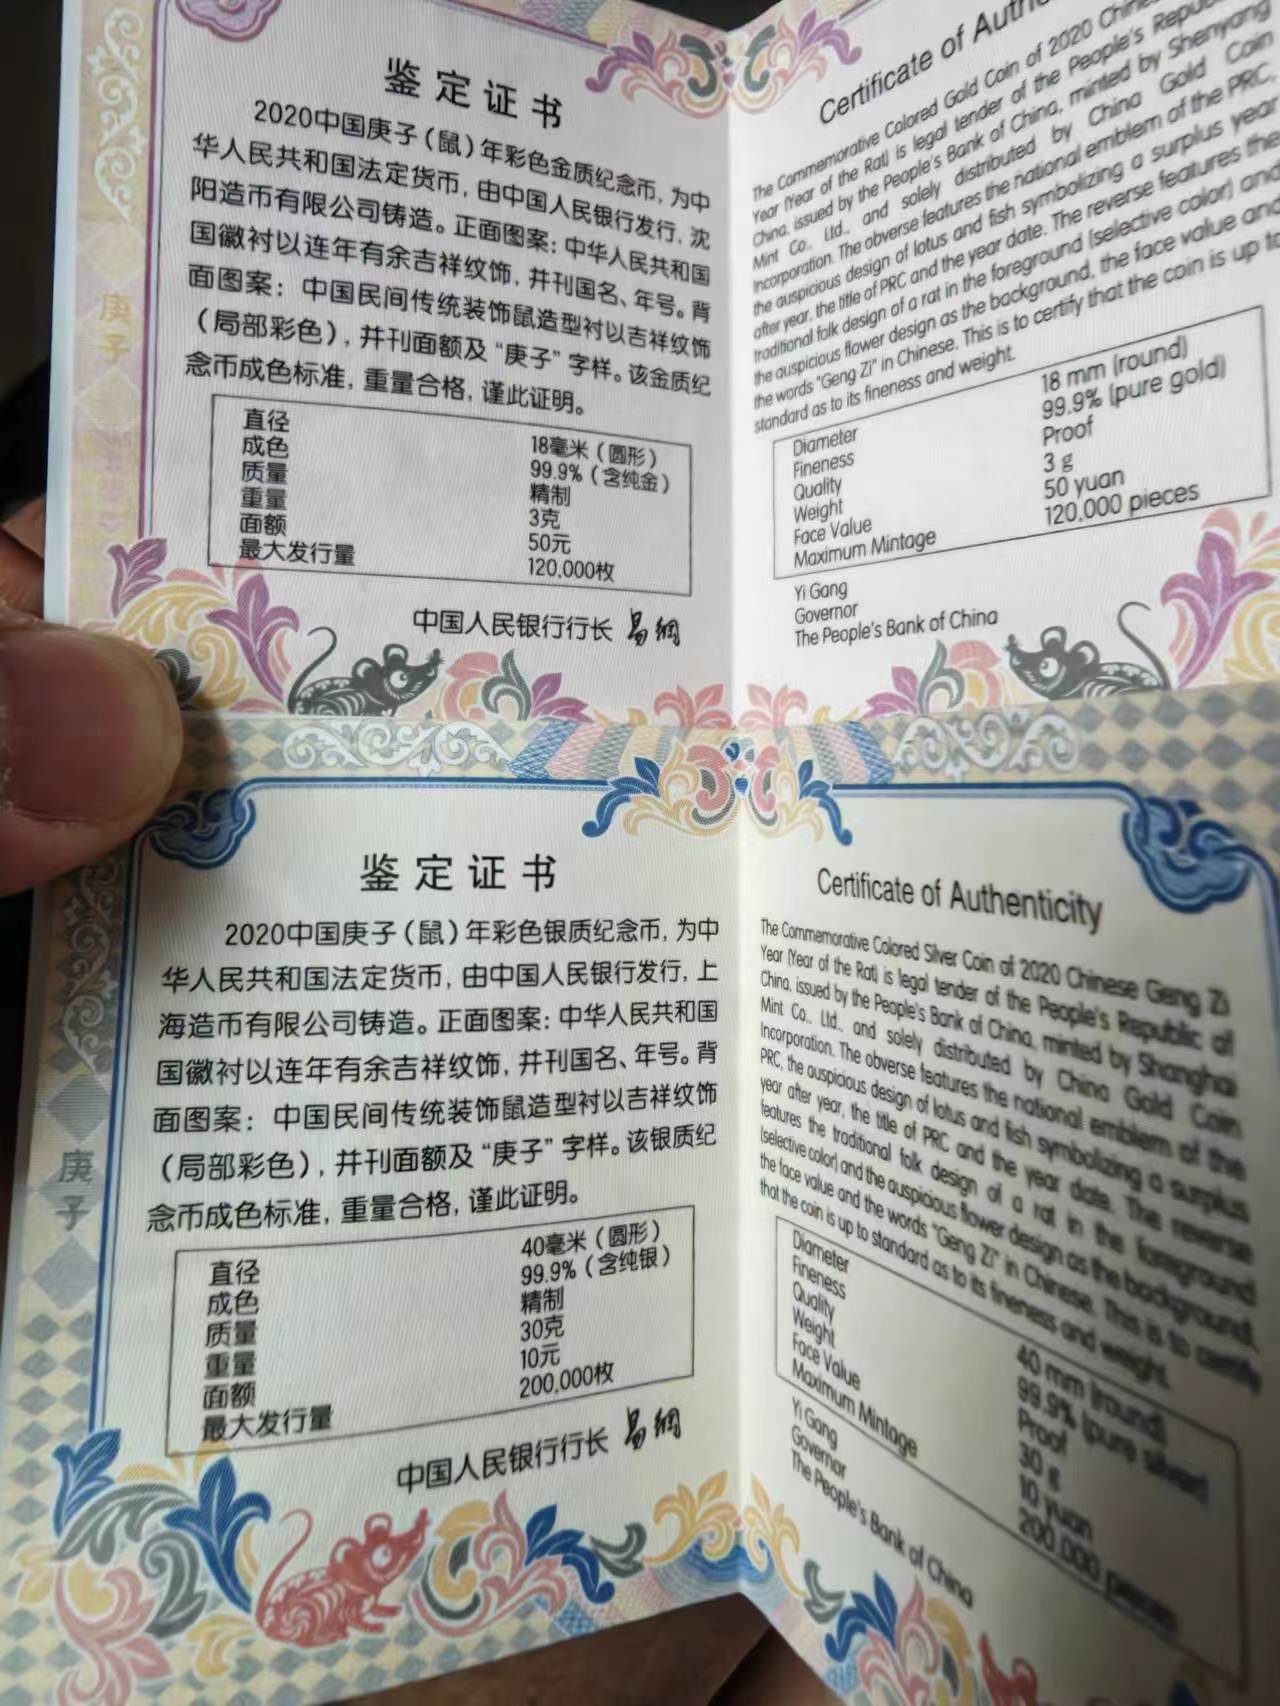 鉴定证书
2020中国庚子（鼠）年彩色金质纪念币，为中
华人民共和国法定货币，由中国人民银行发行，沈
阳造币有限公司铸造。正面图案：中华人民共和国
国徽衬以连年有余吉祥纹饰，并刊国名、年号。背
面图案：中国民间传统装饰鼠造型衬以吉祥纹饰
（局部彩色），并刊面额及“庚子”字样。该金质纪
念币成色标准，重量合格，谨此证明。
直径 18毫米（圆形）
成色 99.9%（含纯金）
质量 精制
重量 3克
面额 50元
最大发行量 120,000枚
中国人民银行行长 易纲
庚子
Certificate of
The Commemorative Colored Gold Coin of 2020
Year (Year of the Rat) is legal tender of the People's
China, issued by the People's Bank of China, minted by Shenyang
Mint Co., Ltd., and solely distributed by China Gold Coin
Incorporation. The obverse features the national emblem of the PRC,
the auspicious design of lotus and fish symbolizing a surplus year
after year, the title of PRC and the year date. The reverse features the
traditional folk design of a rat in the foreground (selective color) and
the auspicious flower design as the background, the face value and
the words "Geng Zi" in Chinese. This is to certify that the coin is up to
standard as to its fineness and weight.
Diameter 18 mm (round)
Fineness 99.9% (pure gold)
Quality Proof
Weight 3 g
Face Value 50 yuan
Maximum Mintage 120,000 pieces
Yi Gang
Governor
The People's Bank of China
鉴定证书
2020中国庚子（鼠）年彩色银质纪念币，为中
华人民共和国法定货币，由中国人民银行发行，上
海造币有限公司铸造。正面图案：中华人民共和国
国徽衬以连年有余吉祥纹饰，并刊国名、年号。背
面图案：中国民间传统装饰鼠造型衬以吉祥纹饰
（局部彩色），并刊面额及“庚子”字样。该银质纪
念币成色标准，重量合格，谨此证明。
直径 40毫米（圆形）
成色 99.9%（含纯银）
质量 精制
重量 30克
面额 10元
最大发行量 200,000枚
中国人民银行行长 易纲
庚子
Certificate of Authenticity
The Commemorative Colored Silver Coin of 2020 Chinese Geng Zi
Year (Year of the Rat) is legal tender of the People's Republic of
China, issued by the People's Bank of China, minted by Shanghai
Mint Co., Ltd., and solely distributed by China Gold Coin
Incorporation. The obverse features the national emblem of the
PRC, the auspicious design of lotus and fish symbolizing a surplus
year after year, the title of PRC and the year date. The reverse
features the traditional folk design of a rat in the foreground
(selective color) and the auspicious flower design as the background,
the face value and the words "Geng Zi" in Chinese. This is to certify
that the coin is up to standard as to its fineness and weight.
Diameter 40 mm (round)
Fineness 99.9% (pure silver)
Quality Proof
Weight 30 g
Face Value 10 yuan
Maximum Mintage 200,000 pieces
Yi Gang
Governor
The People's Bank of China